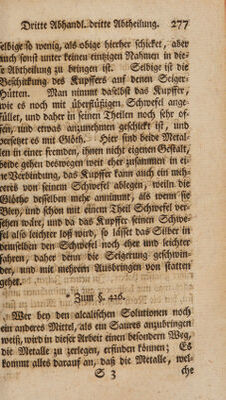 Dritte Abhandl. dritte Abtheilung. 277
selbige so wenig, als obige hierher schicket, aber
auch sonst unter keinen eintzigen Nahmen in die-
se Abtheilung zu bringen ist. Selbige ist die
Beschickung des Kupffers auf denen Seiger-
Hütten. Man nimmt daselbst das Kupffer,
wie es noch mit überflüßigen Schwefel ange-
füllet, und daher in seinen Theilen noch sehr of-
fen, und etwas anzunehmen geschickt ist, und
versetzet es mit Glöth. Hier sind beide Metal-
len in einer fremden, ihnen nicht eigenen Gestalt,
beide gehen deswegen weit eher zusammen in ei-
ne Verbindung, das Kupffer kann auch ein meh-
reres von seinem Schwefel ablegen, weiln die
Glöthe desselben mehr annimmt, als wenn sie
Bley, und schon mit einem Theil Schwefel ver-
sehen wäre, und da das Kupffer seinen Schwe-
fel also leichter loß wird, so lässet das Silber in
demselben den Schwefel noch eher und leichter
fahren, daher denn die Seigerung geschwin-
der, und mit mehrern Ausbringen von statten
gehet.
Zum §. 426.
Wer bey den alcalischen Solutionen noch
ein anderes Mittel, als ein Saures anzubringen
weiß, wird in dieser Arbeit einen besondern Weg,
die Metalle zu zerlegen, erfinden können; Es
kommt alles darauf an, daß die Metalle, wel-
S 3 che